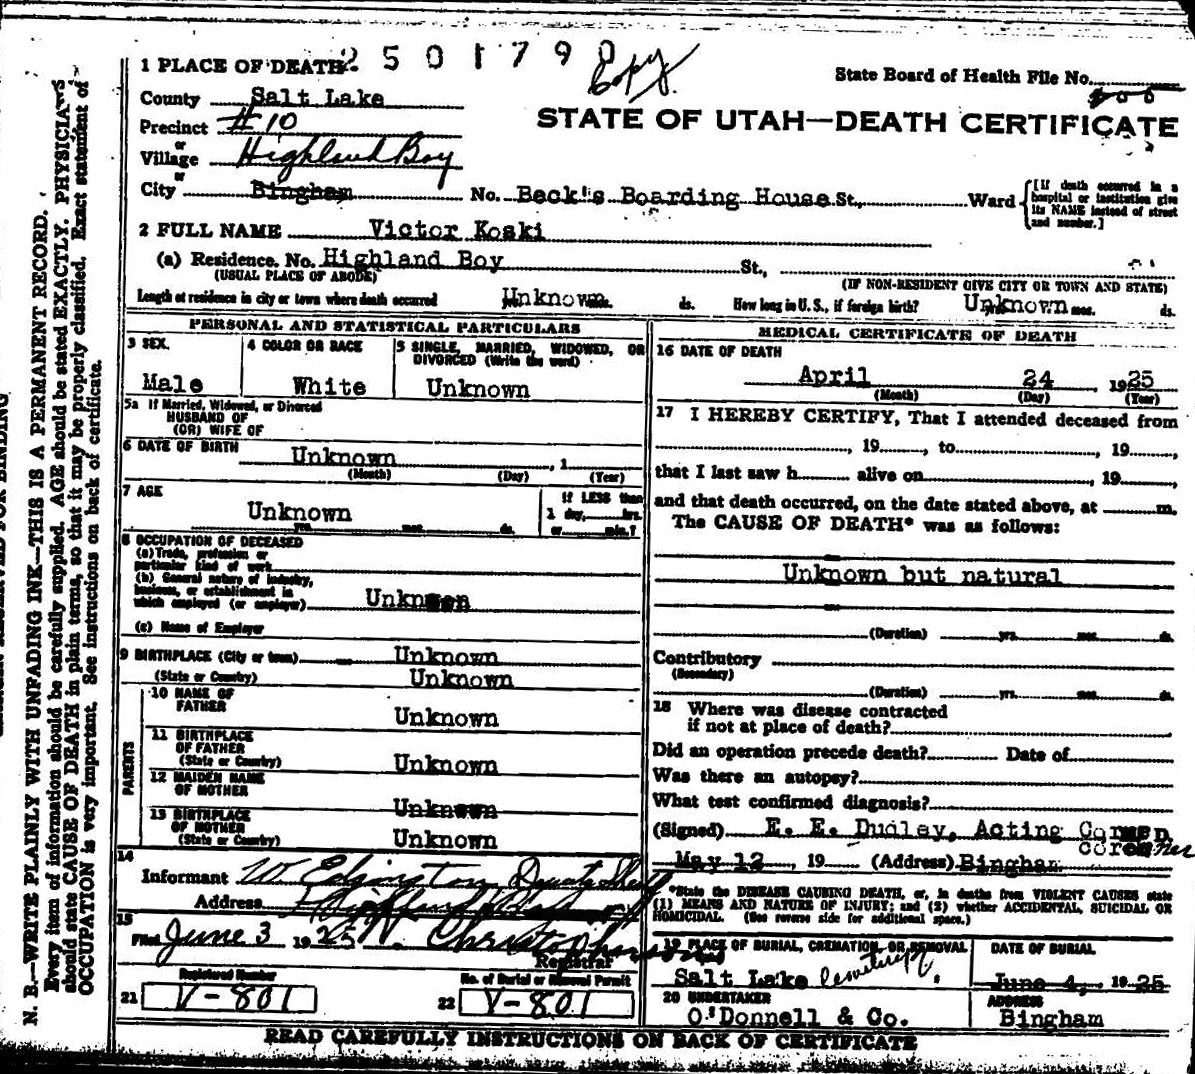 2501790
Copy
State Board of Health File No.
1 PLACE OF DEATH
STATE OF UTAH—DEATH CERTIFICATE
County Salt Lake
Precinct #10
or
Village Highland Boy
or
City Bingham No. Beck's Boarding House St., Ward
[If death occurred in a hospital or institution give its NAME instead of street and number.]
2 FULL NAME Victor Koski
(a) Residence. No. Highland Boy St.,
(USUAL PLACE OF ABODE) (IF NON-RESIDENT GIVE CITY OR TOWN AND STATE)
Length of residence in city or town where death occurred Unknown mos. ds. How long in U. S., if foreign birth? Unknown mos. ds.
PERSONAL AND STATISTICAL PARTICULARS
3 SEX. 4 COLOR OR RACE 5 SINGLE, MARRIED, WIDOWED, OR DIVORCED (Write the word)
Male White Unknown
5a If Married, Widowed, or Divorced
HUSBAND OF
(OR) WIFE OF
6 DATE OF BIRTH Unknown , 1
(Month) (Day) (Year)
7 AGE If LESS than
Unknown 1 day, hrs.
yrs. mos. ds. or min.?
8 OCCUPATION OF DECEASED
(a) Trade, profession or
particular kind of work
(b) General nature of industry,
business, or establishment in
which employed (or employer) Unknown
(c) Name of Employer
9 BIRTHPLACE (City or town) Unknown
(State or Country) Unknown
PARENTS
10 NAME OF
FATHER Unknown
11 BIRTHPLACE
OF FATHER
(State or Country) Unknown
12 MAIDEN NAME
OF MOTHER Unknown
13 BIRTHPLACE
OF MOTHER
(State or Country) Unknown
14
Informant W Edgington Deputy Sheriff
Address Highland Boy
15
Filed June 3 1925 W. Christopherson
Registrar
Registered Number No. of Burial or Removal Permit
21 V-801 22 V-801
MEDICAL CERTIFICATE OF DEATH
16 DATE OF DEATH
April 24, 1925
(Month) (Day) (Year)
17 I HEREBY CERTIFY, That I attended deceased from
, 19 , to , 19 ,
that I last saw h alive on , 19 ,
and that death occurred, on the date stated above, at m.
The CAUSE OF DEATH* was as follows:
Unknown but natural
(Duration) yrs. mos. ds.
Contributory
(Secondary)
(Duration) yrs. mos. ds.
18 Where was disease contracted
if not at place of death?
Did an operation precede death? Date of
Was there an autopsy?
What test confirmed diagnosis?
(Signed) E. E. Dudley, Acting M. D.
coroner
May 12, 19 (Address) Bingham
*State the DISEASE CAUSING DEATH, or, in deaths from VIOLENT CAUSES state
(1) MEANS AND NATURE OF INJURY; and (2) whether ACCIDENTAL, SUICIDAL OR
HOMICIDAL. (See reverse side for additional space.)
19 PLACE OF BURIAL, CREMATION, OR REMOVAL DATE OF BURIAL
Salt Lake Cemetery June 4, 1925
20 UNDERTAKER ADDRESS
O'Donnell & Co. Bingham
READ CAREFULLY INSTRUCTIONS ON BACK OF CERTIFICATE
N. B.—WRITE PLAINLY WITH UNFADING INK—THIS IS A PERMANENT RECORD.
Every item of information should be carefully supplied. AGE should be stated EXACTLY. PHYSICIANS
should state CAUSE OF DEATH in plain terms, so that it may be properly classified. Exact statement of
OCCUPATION is very important. See instructions on back of certificate.